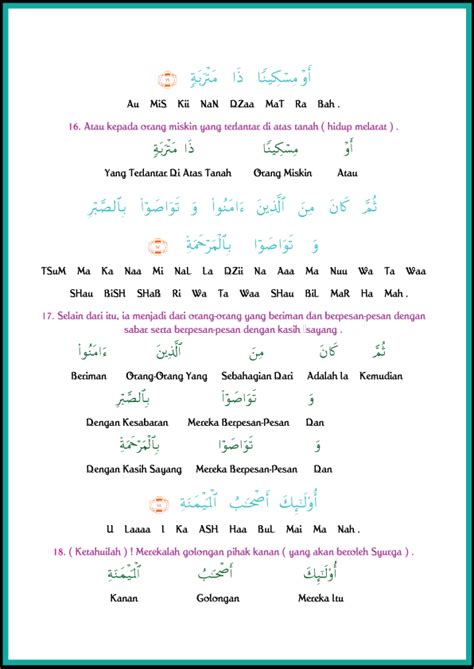 أَوْ مِسْكِينًا ذَا مَتْرَبَةٍ ١٦
Au MiS Kii NaN DZaa MaT Ra Bah .
16. Atau kepada orang miskin yang terlantar di atas tanah ( hidup melarat ) .
أَوْ مِسْكِينًا ذَا مَتْرَبَةٍ
Yang Terlantar Di Atas Tanah Orang Miskin Atau
ثُمَّ كَانَ مِنَ ٱلَّذِينَ ءَامَنُوا۟ وَ تَوَاصَوْا۟ بِٱلصَّبْرِ
وَ تَوَاصَوْا۟ بِٱلْمَرْحَمَةِ ١٧
TSuM Ma Ka Naa Mi NaL La DZii Na Aaa Ma Nuu Wa Ta Waa
SHau BiSH SHaB Ri Wa Ta Waa SHau BiL MaR Ha Mah .
17. Selain dari itu, ia menjadi dari orang-orang yang beriman dan berpesan-pesan dengan
sabar serta berpesan-pesan dengan kasih sayang .
ثُمَّ كَانَ مِنَ ٱلَّذِينَ ءَامَنُوا۟
Beriman Orang-Orang Yang Sebahagian Dari Adalah Ia Kemudian
وَ تَوَاصَوْا۟ بِٱلصَّبْرِ
Dengan Kesabaran Mereka Berpesan-Pesan Dan
وَ تَوَاصَوْا۟ بِٱلْمَرْحَمَةِ
Dengan Kasih Sayang Mereka Berpesan-Pesan Dan
أُو۟لَـٰٓئِكَ أَصْحَـٰبُ ٱلْمَيْمَنَةِ ١٨
U Laaaa I Ka ASH Haa BuL Mai Ma Nah .
18. ( Ketahuilah ) ! Merekalah golongan pihak kanan ( yang akan beroleh Syurga ) .
أُو۟لَـٰٓئِكَ أَصْحَـٰبُ ٱلْمَيْمَنَةِ
Kanan Golongan Mereka Itu